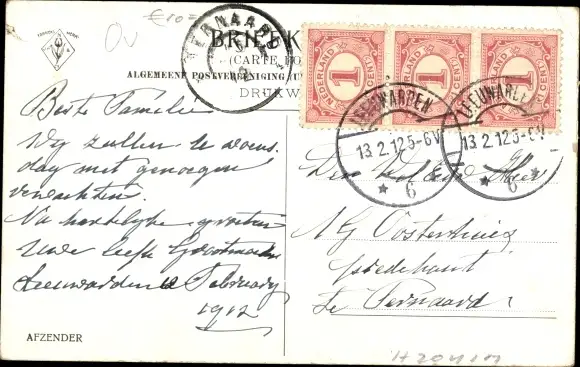 €10=
OV
TERNAARD
BRIEFK
(CARTE PO
ALGEMEENE POSTVEREENIGING (U
DRUKW
NEDERLAND 1 CENT
NEDERLAND 1 CENT
1 CENT
LEEUWARDEN
13.2.12 5-6V
* 6
LEEUWARDEN
13.2.12 5-6V
* 6
Beste Familie
Wy zullen u woens
dag met genoegen
verwachten.
Na hartelyke groeten
Uwe liefh Grootmoeder
Leeuwarden Februarij
1912
Den Heer
Oosterhuis
predikant
Te Ternaard
AFZENDER